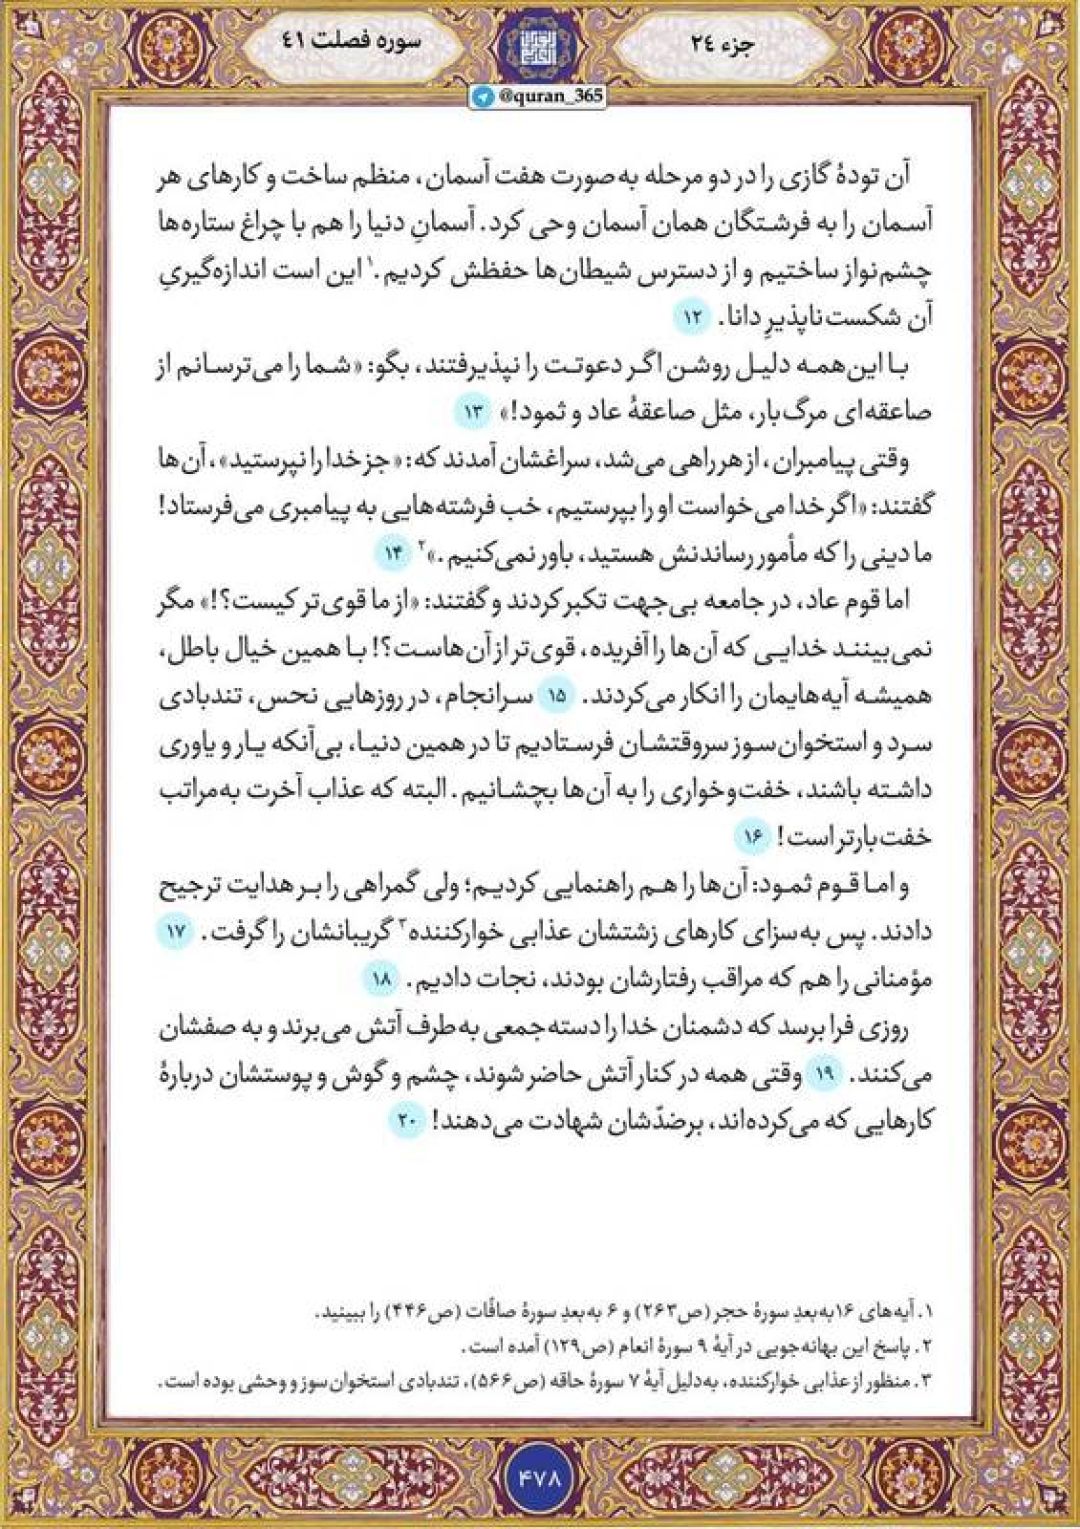 جزء ٢٤
سوره فصلت ٤١
@quran_365
آن تودهٔ گازی را در دو مرحله به‌صورت هفت آسمان، منظم ساخت و کارهای هر
آسمان را به فرشتگان همان آسمان وحی کرد. آسمانِ دنیا را هم با چراغ ستاره‌ها
چشم‌نواز ساختیم و از دسترس شیطان‌ها حفظش کردیم.۱ این است اندازه‌گیریِ
آن شکست‌ناپذیرِ دانا. ۱۲
با این‌همه دلیل روشن اگر دعوتت را نپذیرفتند، بگو: «شما را می‌ترسانم از
صاعقه‌ای مرگ‌بار، مثل صاعقهٔ عاد و ثمود!» ۱۳
وقتی پیامبران، از هر راهی می‌شد، سراغشان آمدند که: «جز خدا را نپرستید»، آن‌ها
گفتند: «اگر خدا می‌خواست او را بپرستیم، خب فرشته‌هایی به پیامبری می‌فرستاد!
ما دینی را که مأمور رساندنش هستید، باور نمی‌کنیم.»۲ ۱۴
اما قوم عاد، در جامعه بی‌جهت تکبر کردند و گفتند: «از ما قوی‌تر کیست؟!» مگر
نمی‌بینند خدایی که آن‌ها را آفریده، قوی‌تر از آن‌هاست؟! با همین خیال باطل،
همیشه آیه‌هایمان را انکار می‌کردند. ۱۵ سرانجام، در روزهایی نحس، تندبادی
سرد و استخوان‌سوز سروقتشان فرستادیم تا در همین دنیا، بی‌آنکه یار و یاوری
داشته باشند، خفت‌وخواری را به آن‌ها بچشانیم. البته که عذاب آخرت به‌مراتب
خفت‌بارتر است! ۱۶
و اما قوم ثمود: آن‌ها را هم راهنمایی کردیم؛ ولی گمراهی را بر هدایت ترجیح
دادند. پس به‌سزای کارهای زشتشان عذابی خوارکننده۳ گریبانشان را گرفت. ۱۷
مؤمنانی را هم که مراقب رفتارشان بودند، نجات دادیم. ۱۸
روزی فرا برسد که دشمنان خدا را دسته‌جمعی به‌طرف آتش می‌برند و به صفشان
می‌کنند. ۱۹ وقتی همه در کنار آتش حاضر شوند، چشم و گوش و پوستشان دربارهٔ
کارهایی که می‌کرده‌اند، برضدّشان شهادت می‌دهند! ۲۰
۱. آیه‌های ۱۶به‌بعدِ سورهٔ حجر (ص۲۶۳) و ۶ به‌بعدِ سورهٔ صافّات (ص۴۴۶) را ببینید.
۲. پاسخ این بهانه‌جویی در آیهٔ ۹ سورهٔ انعام (ص۱۲۹) آمده است.
۳. منظور از عذابی خوارکننده، به‌دلیل آیهٔ ۷ سورهٔ حاقه (ص۵۶۶)، تندبادی استخوان‌سوز و وحشی بوده است.
۴۷۸